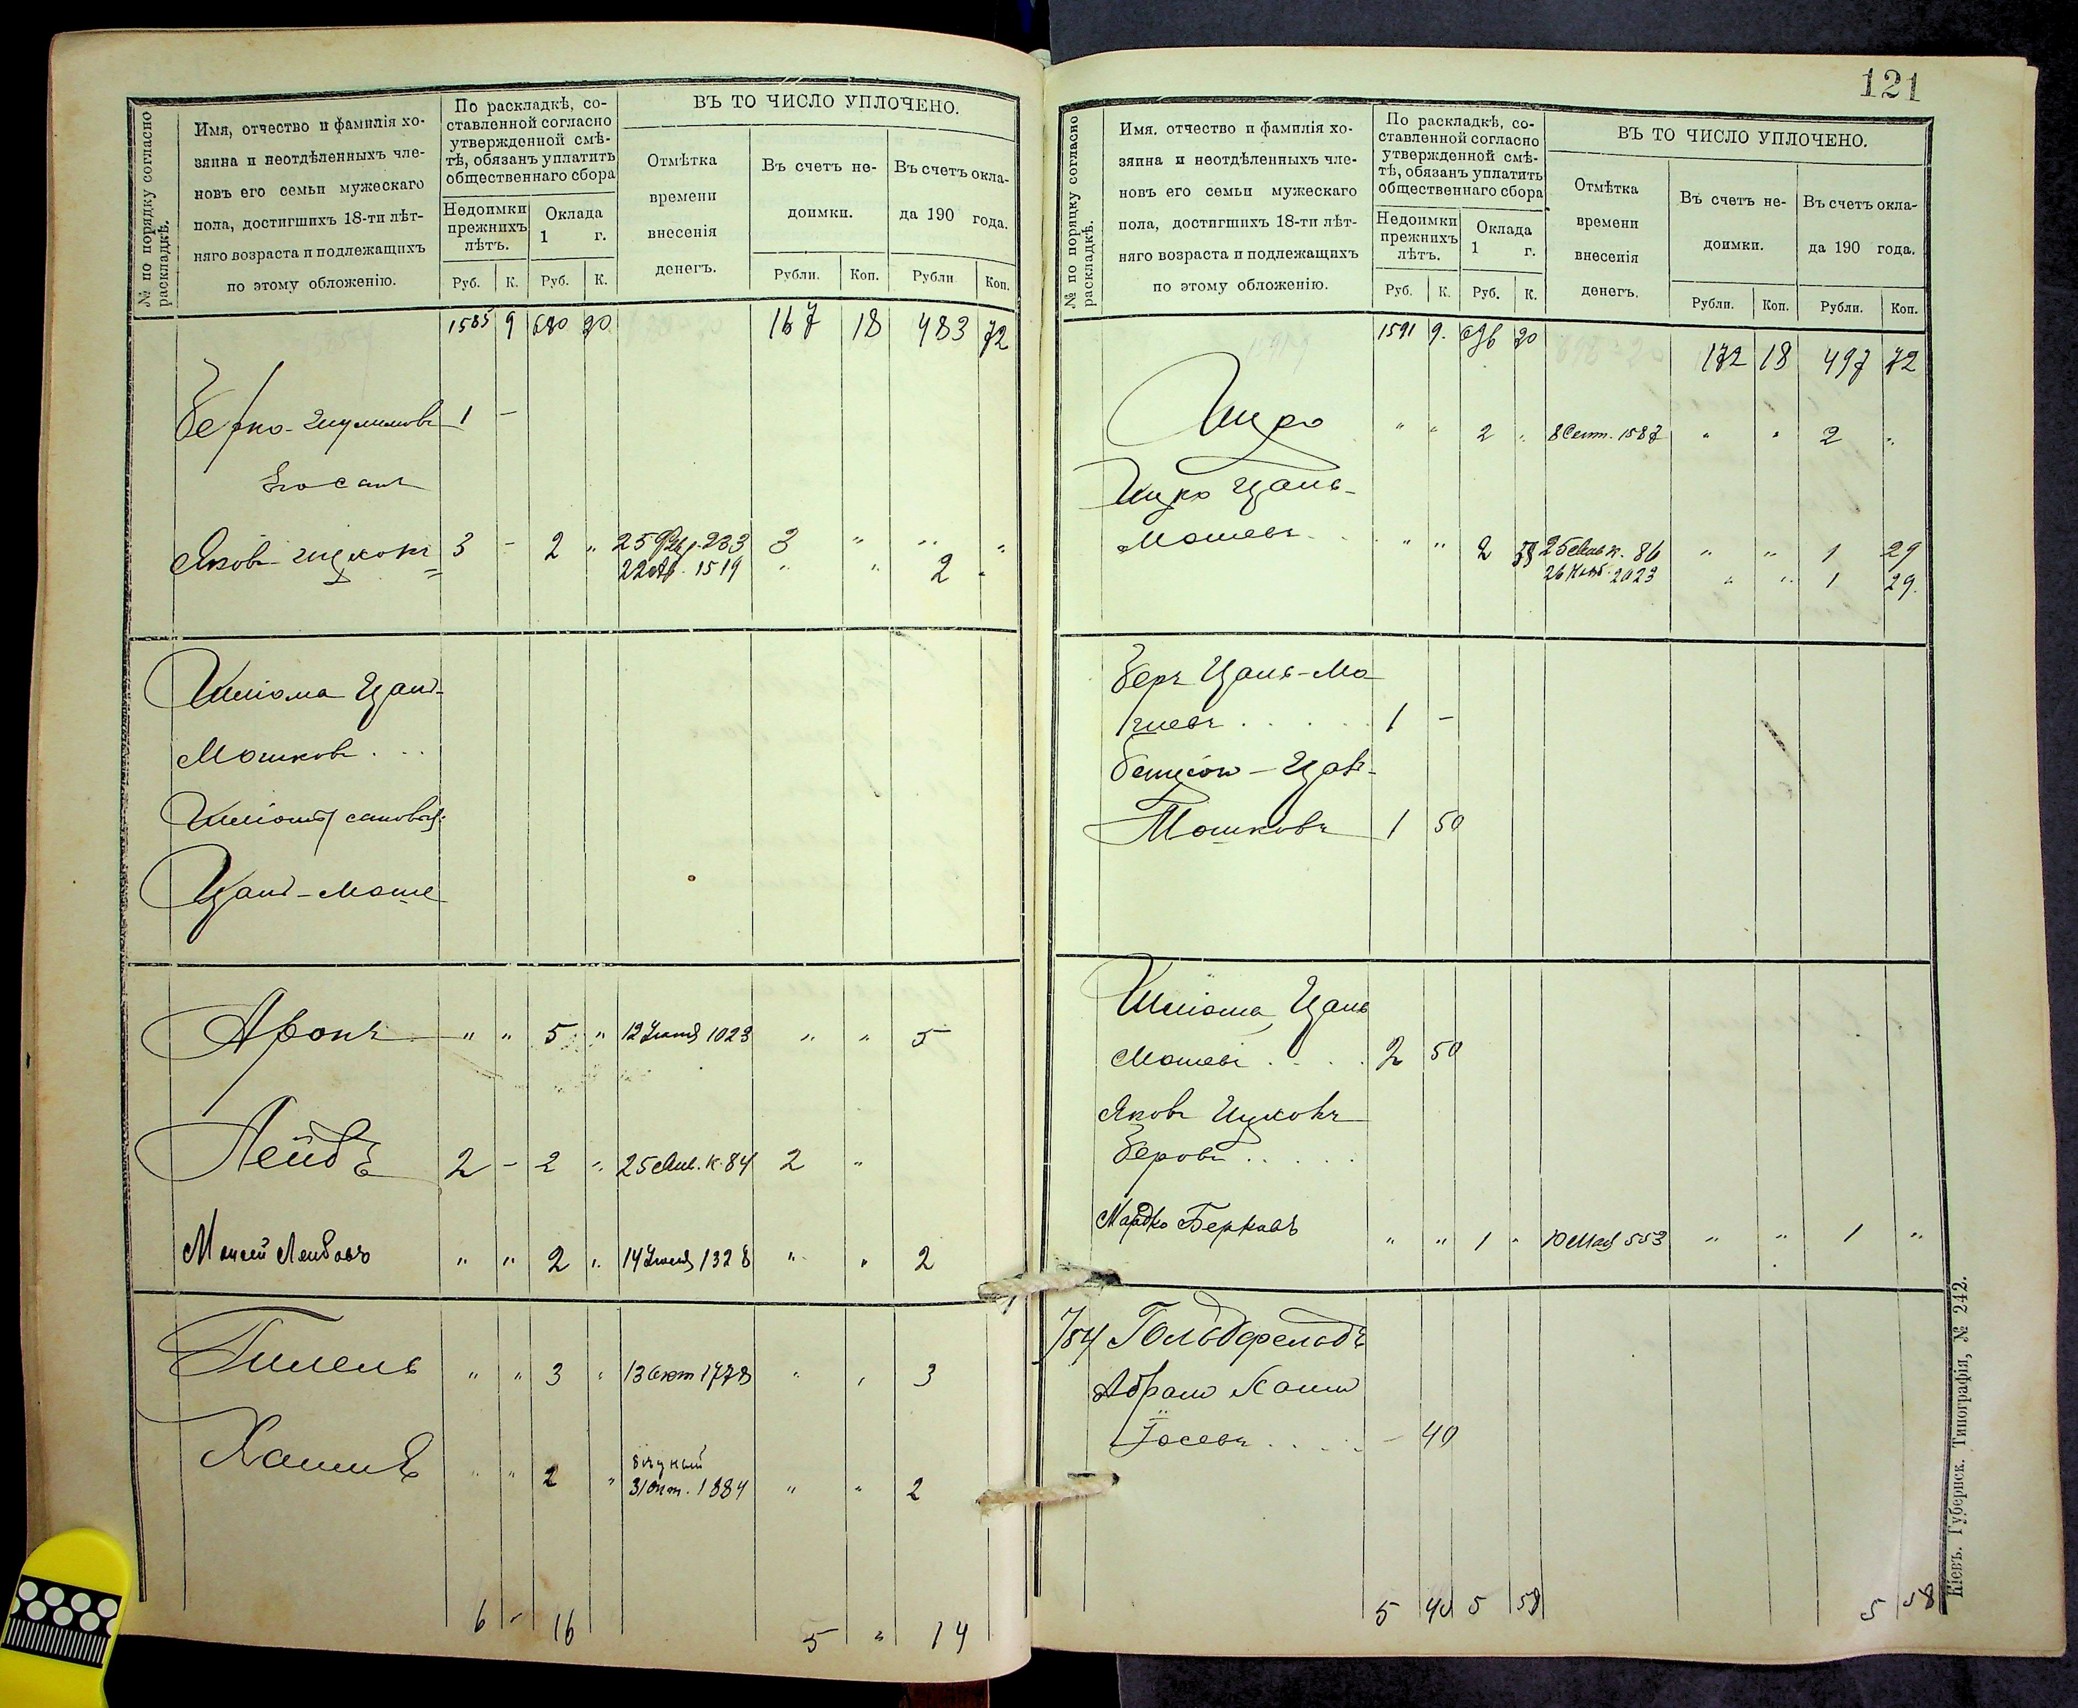 № по порядку согласно раскладкѣ.
Имя, отчество и фамилія хо-
зяина и неотдѣленныхъ чле-
новъ его семьи мужескаго
пола, достигшихъ 18-ти лѣт-
няго возраста и подлежащихъ
по этому обложенію.
По раскладкѣ, со-
ставленной согласно
утвержденной смѣ-
тѣ, обязанъ уплатить
общественнаго сбора
Недоимки
прежнихъ
лѣтъ.
Оклада
1 г.
Руб. К. Руб. К.
ВЪ ТО ЧИСЛО УПЛОЧЕНО.
Отмѣтка
времени
внесенія
денегъ.
Въ счетъ не-
доимки.
Въ счетъ окла-
да 190 года.
Рубли. Коп. Рубли Коп.
1585 9 680 20 167 18 483 72
Берко 1 -
Яковъ Ицковъ 3 - 2 " 25 Февр. 233 3 " " "
22 Ав. 1519 " " 2 "
Шліома Цаль-
Мошковъ . . .
Цаль-Моше
Аронъ " " 5 " 12 Іюня 1023 " " 5
Лейбъ 2 - 2 " 25 Янв. к. 84 2 "
Мошей Лейбовъ " " 2 " 14 Іюля 1328 " " 2
Гилель " " 3 " 13 Окт 1778 " " 3
Хаимъ " " 2 " 31 Окт. 1884 " " 2
6 - 16 5 " 14
121
№ по порядку согласно раскладкѣ.
Имя, отчество и фамилія хо-
зяина и неотдѣленныхъ чле-
новъ его семьи мужескаго
пола, достигшихъ 18-ти лѣт-
няго возраста и подлежащихъ
по этому обложенію.
По раскладкѣ, со-
ставленной согласно
утвержденной смѣ-
тѣ, обязанъ уплатить
общественнаго сбора
Недоимки
прежнихъ
лѣтъ.
Оклада
1 г.
Руб. К. Руб. К.
ВЪ ТО ЧИСЛО УПЛОЧЕНО.
Отмѣтка
времени
внесенія
денегъ.
Въ счетъ не-
доимки.
Въ счетъ окла-
да 190 года.
Рубли. Коп. Рубли. Коп.
1591 9. 696 20 172 18 497 72
Ицко " " 2 " 8 Сент. 1587 " " 2 "
Ицко Цаль-
Мошевъ . . " " 2 58 25 Янв. к. 86 " " 1 29
26 Нояб. 2023 " " 1 29
Беръ Цаль-Мо
шевъ . . . . . 1 -
Бенціон-Цаль-
Мошковъ 1 50
Шліома Цаль
Мошевъ . . . . 2 50
Яковъ Ицковъ
Беровъ . . . . .
Мордко Берковъ " " 1 " 10 Мая 553 " " 1 "
784 Гольдфельдъ
Абрам Хаим
Іосевъ . . . . . - 40
5 40 5 58 5 58
Кіевъ. Губернск. Типографія, № 242.